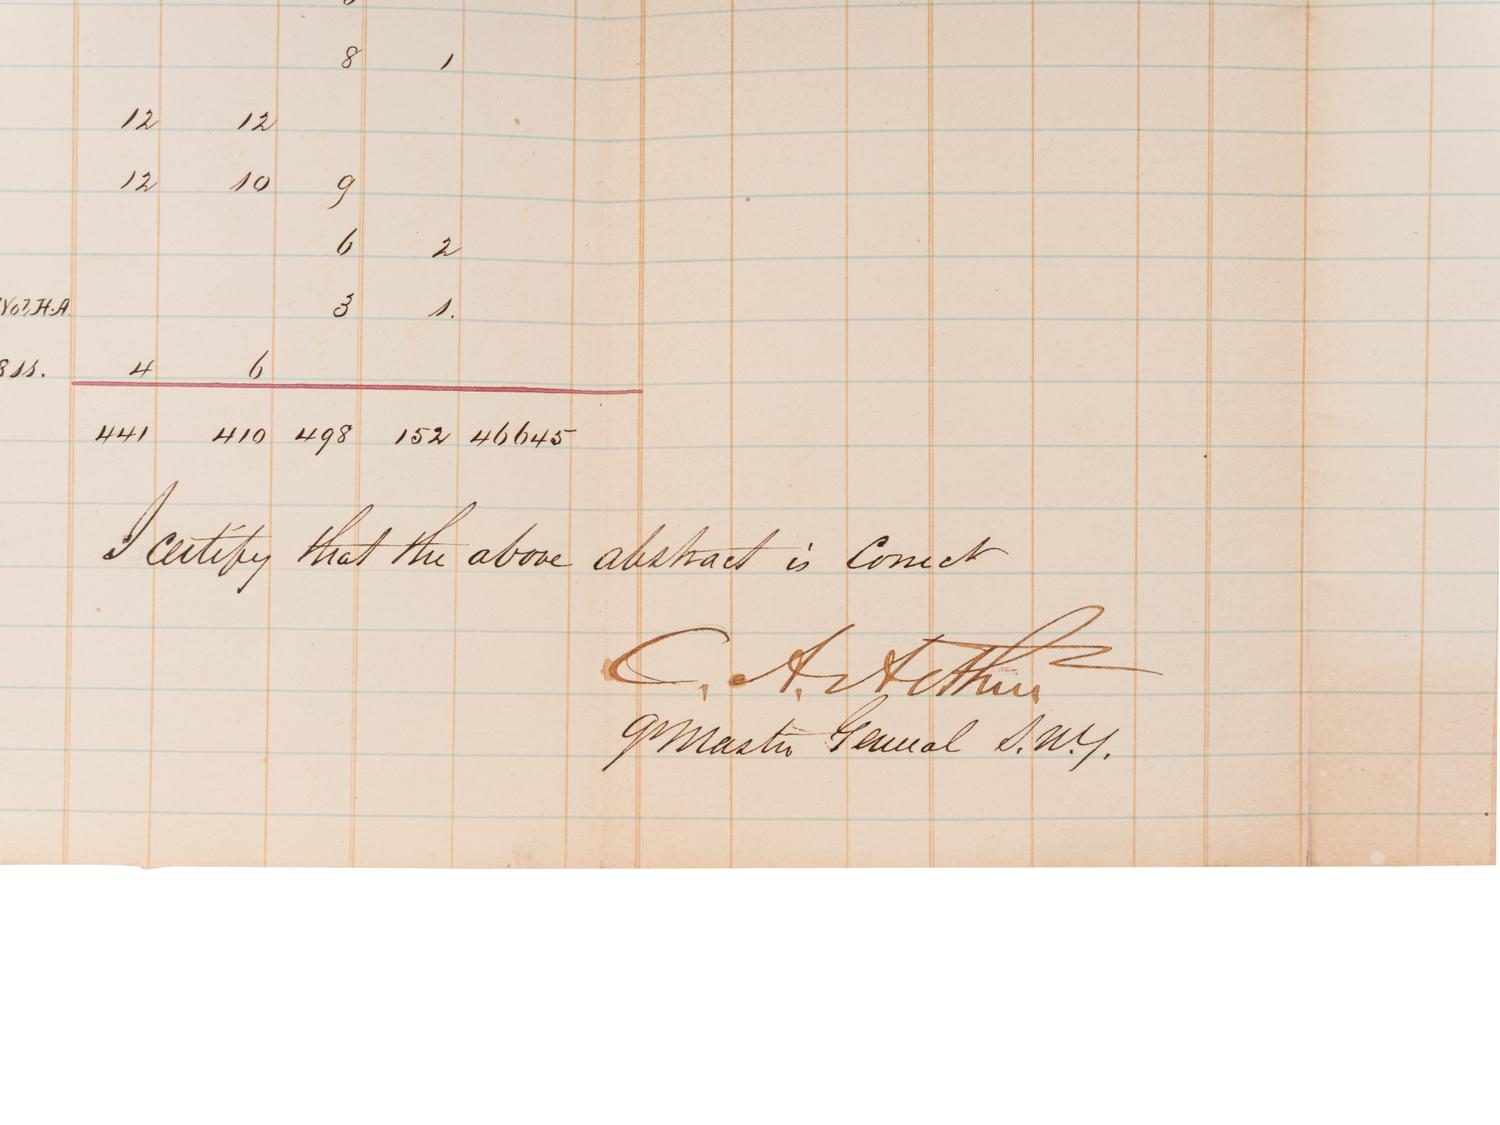 8 1
12 12
12 10 9
6 2
Vol. H.A. 3 1.
4 6
441 410 498 152 46645
I certify that the above abstract is correct
C. A. Arthur
Qr Master General S.N.Y.